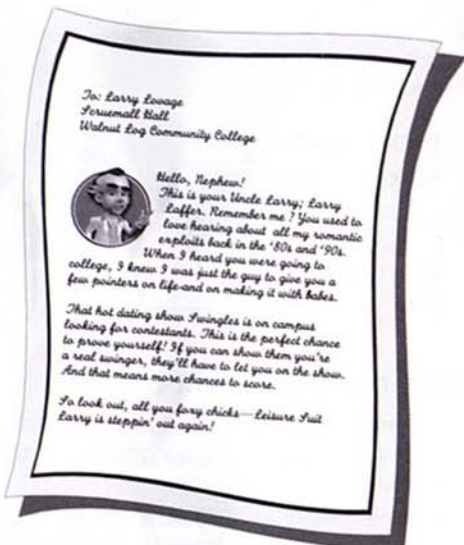 To: Larry Lovage
Scruemall Hall
Walnut Log Community College
Hello, Nephew!
This is your Uncle Larry; Larry
Laffer. Remember me? You used to
love hearing about all my romantic
exploits back in the '80s and '90s.
When I heard you were going to
college, I knew I was just the guy to give you a
few pointers on life–and on making it with babes.
That hot dating show Swingles is on campus
looking for contestants. This is the perfect chance
to prove yourself! If you can show them you're
a real swinger, they'll have to let you on the show.
And that means more chances to score.
So look out, all you foxy chicks––Leisure Suit
Larry is steppin' out again!